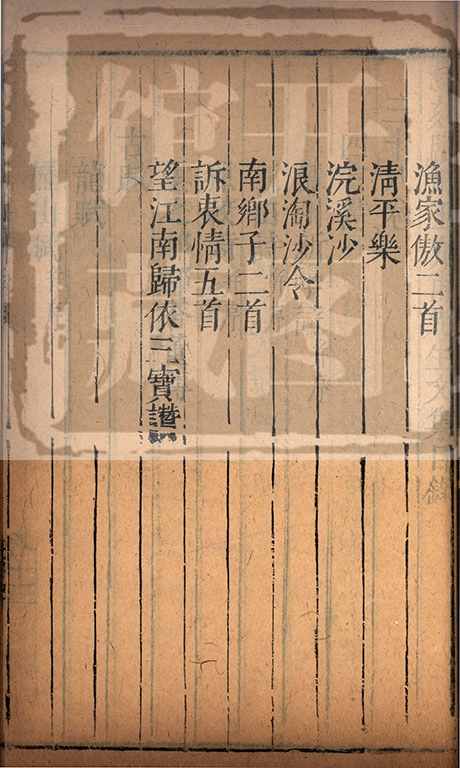 漁家傲二首
清平樂
浣溪沙
浪淘沙令
南鄉子二首
訴衷情五首
望江南歸依三寶讚